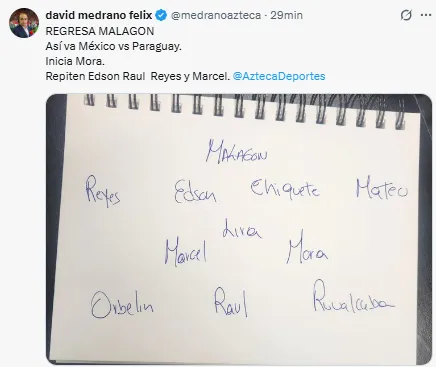 david medrano felix @medranoazteca · 29min
REGRESA MALAGON
Así va México vs Paraguay.
Inicia Mora.
Repiten Edson Raul Reyes y Marcel. @AztecaDeportes
MALAGON
Reyes Edson Chiquete Mateo
Lira
Marcel Mora
Orbelin Raul Ruvalcaba